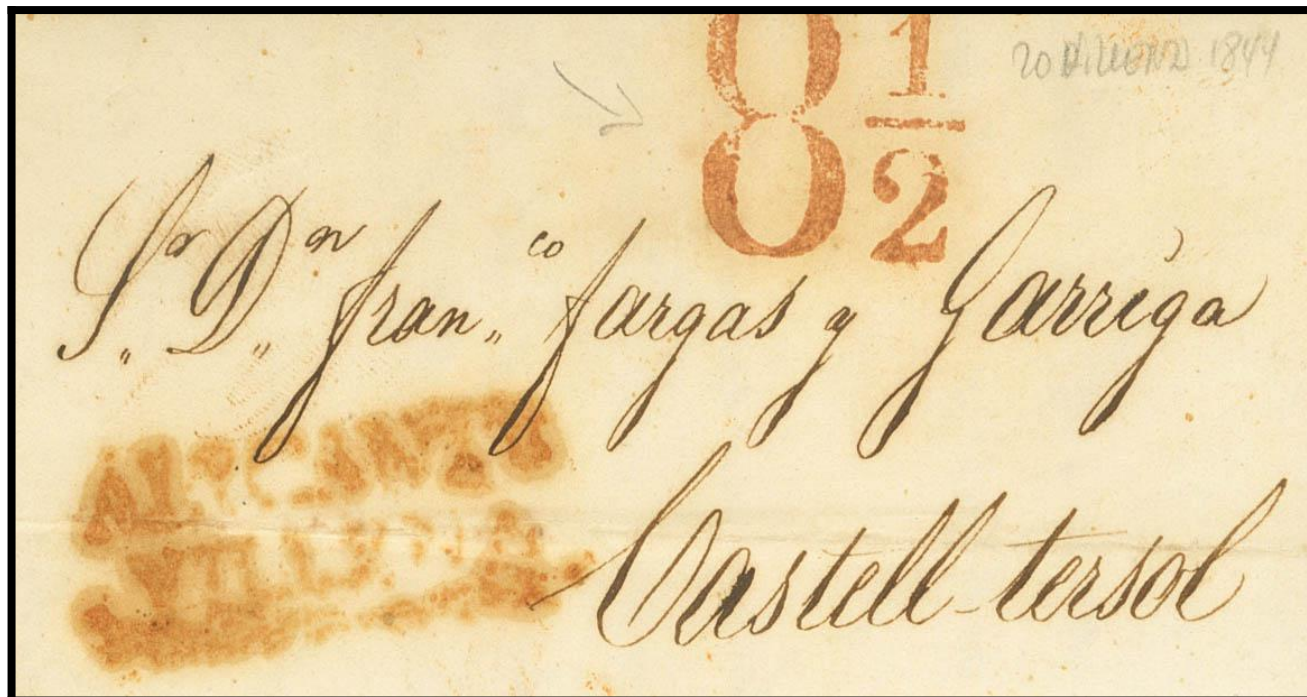 8 1/2
1844
S.or D.on fran.co fargas y Garriga
ALICANTE
Castell-tersol